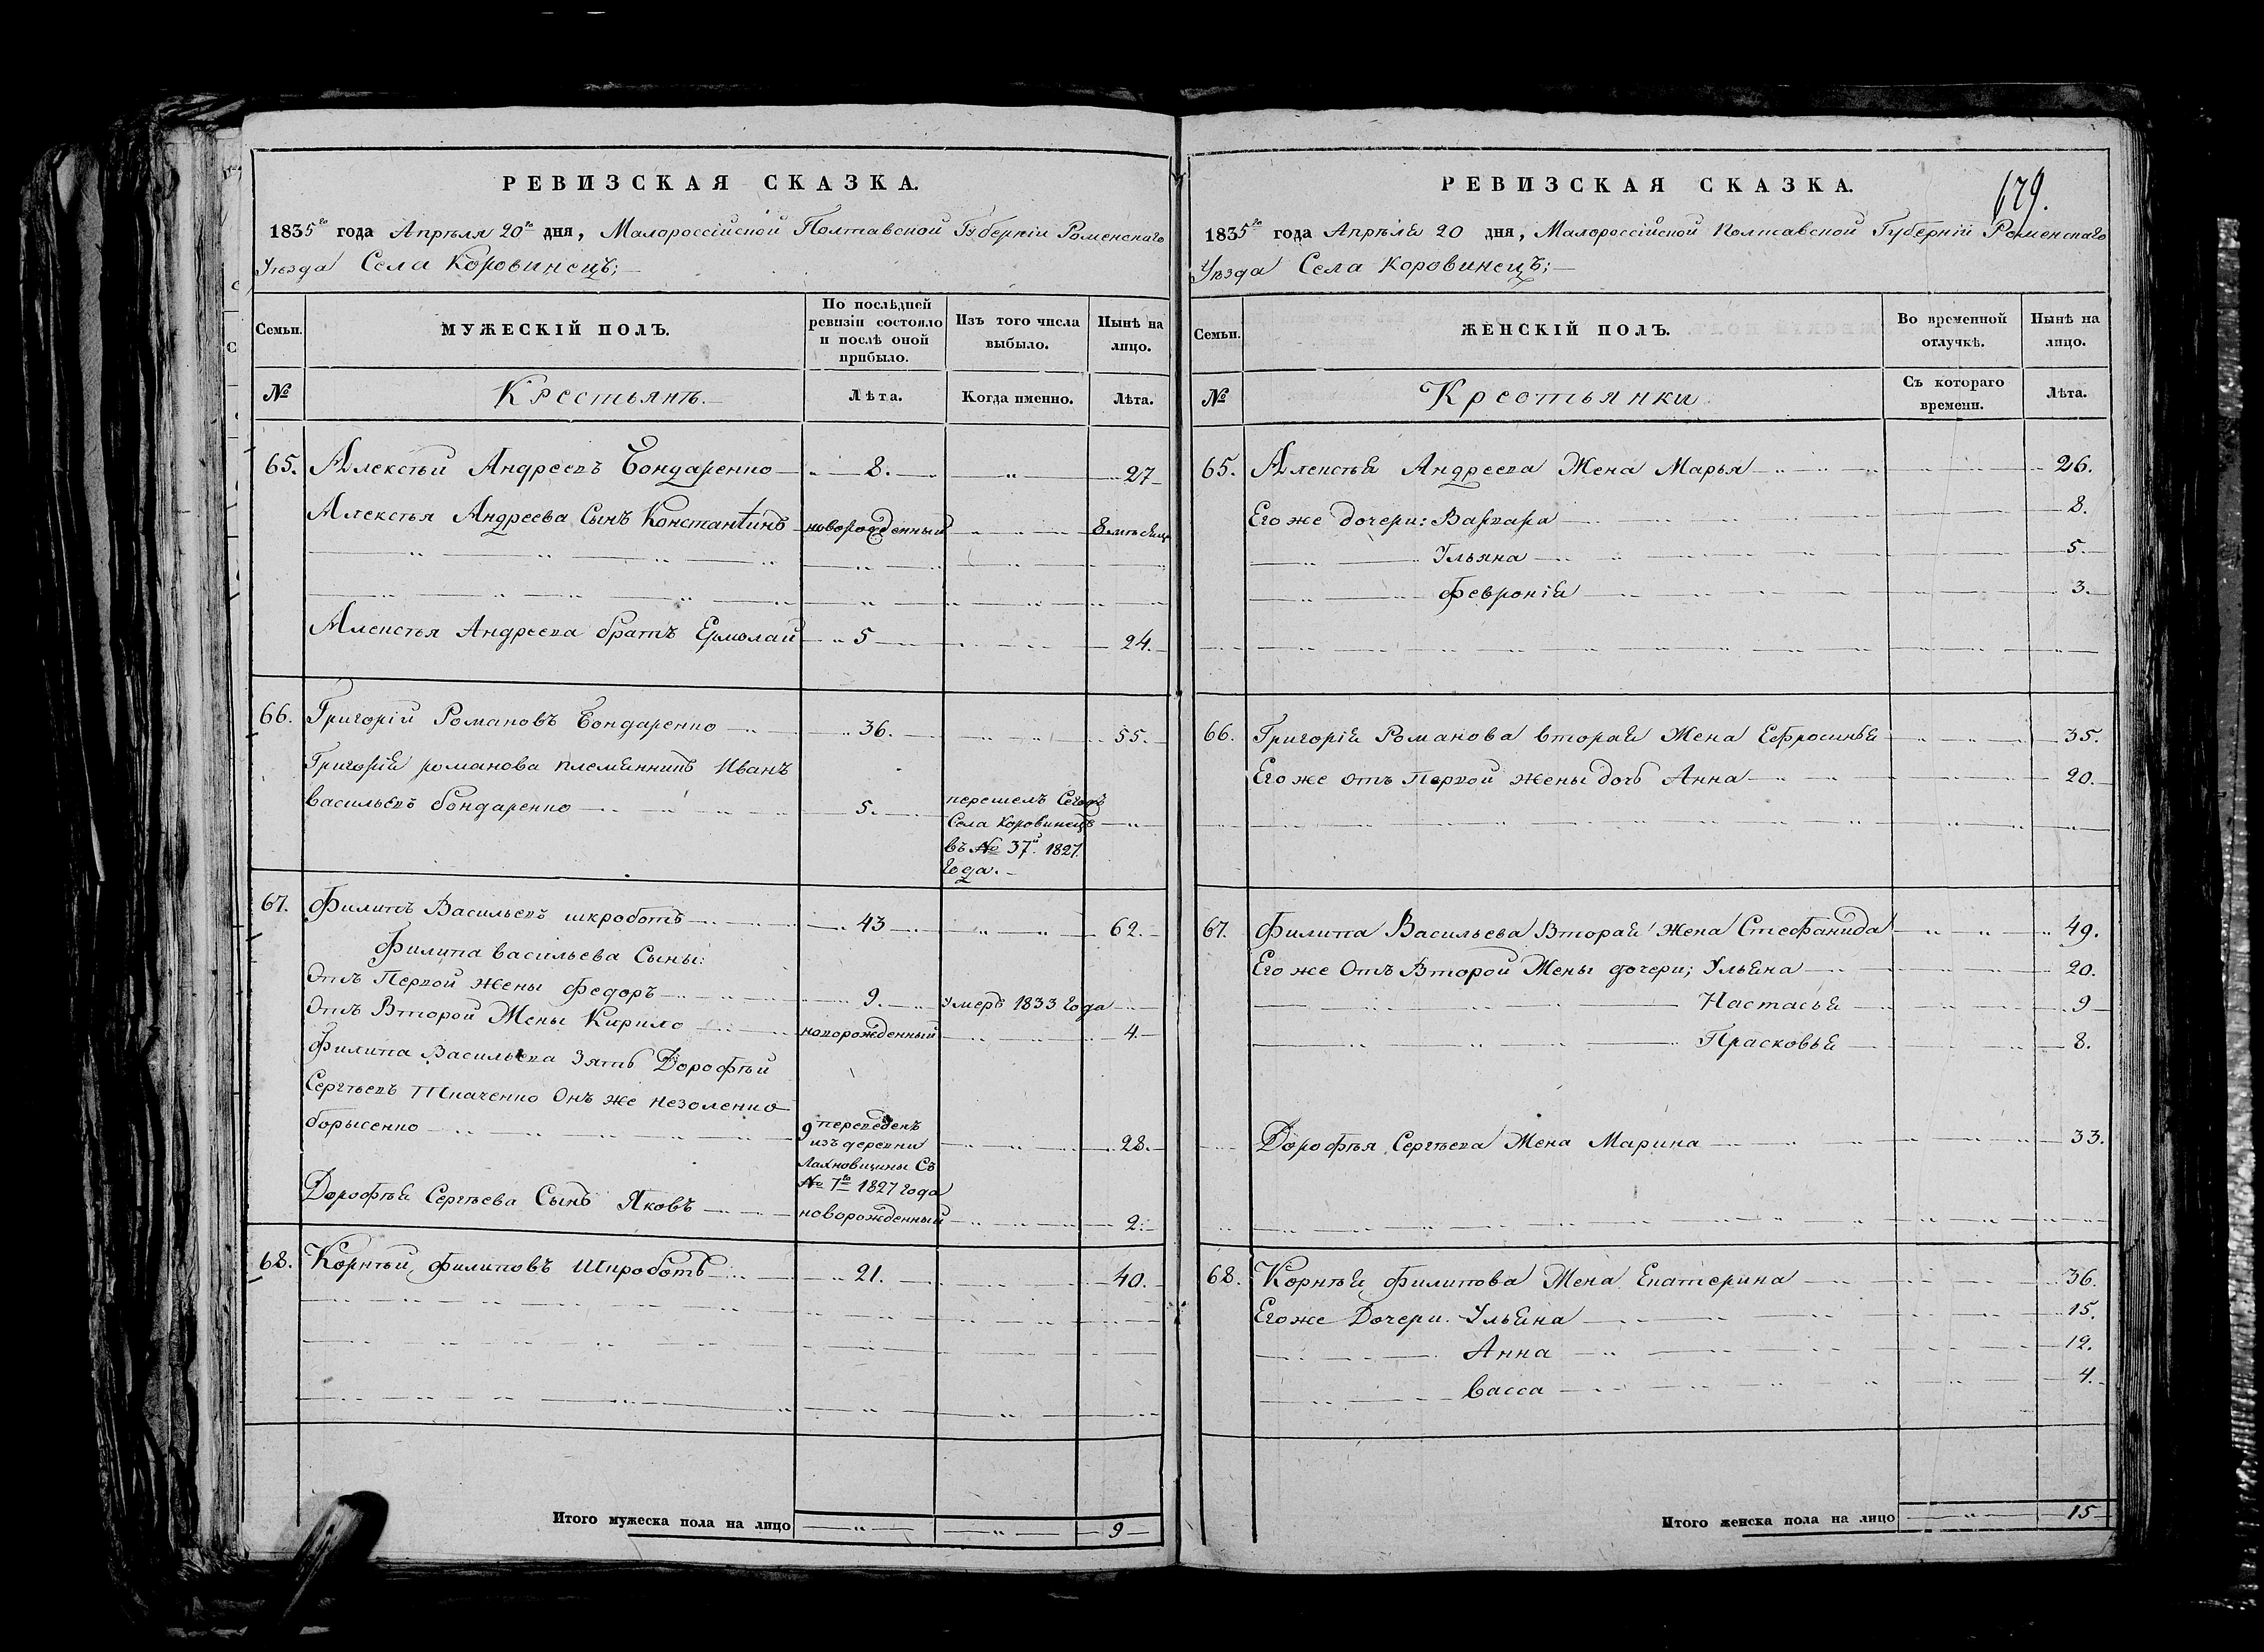 РЕВИЗСКАЯ СКАЗКА.
1835го года Апрѣля 20го дня, Малороссійской Полтавской Губерніи Роменскаго
Уѣзда Села Коровинецъ;
Семьи. МУЖЕСКІЙ ПОЛЪ. По послѣдней ревизіи состояло и послѣ оной прибыло. Изъ того числа выбыло. Нынѣ на лицо.
№ Крестьянъ. Лѣта. Когда именно. Лѣта.
65. Алексѣй Андреевъ Бондаренко 8. 27
Алексѣя Андреева Сынъ Константинъ новорожденный 8 мѣсяц
Алексѣя Андреева братъ Ермолай 5 24.
66. Григорій Романовъ Бондаренко 36. 55.
Григорія романова племянникъ Иванъ
Васильевъ бондаренко 5. перешелъ Сегожъ
Села Коровинецъ
въ № 37й. 1827.
Года.
67. Филипъ Васильевъ шкроботъ 43 62.
Филипа васильева Сыны:
Отъ Первой жены Федоръ 9. умеръ 1833 года
Отъ Второй Жены Кирило новорожденный 4.
Филипа Васильева Зять Дорофѣй
Сергѣевъ Ткаченко Онъ же Незоленко
борысенко 9 переведенъ 28.
изъ деревни
Лахновщины Съ
№ 7го 1827 года
Дорофѣя Сергѣева Сынъ Яковъ новорожденный 2.
68. Корнѣй Филиповъ Шкроботъ 21. 40.
Итого мужеска пола на лицо 9
679.
РЕВИЗСКАЯ СКАЗКА.
1835го года Апрѣля 20 дня, Малороссійской Полтавской Губерніи Роменскаго
Уѣзда Села Коровинецъ;
Семьи. ЖЕНСКІЙ ПОЛЪ. Во временной отлучкѣ. Нынѣ на лицо.
№ Крестьянки Съ котораго времени. Лѣта.
65. Алексѣя Андреева Жена Марья 26.
Его же дочери: Варвара 8.
Ульяна 5.
Февронія 3.
66. Григорія Романова вторая Жена Ефросинья 35.
Его же отъ первой жены дочь Анна 20.
67. Филипа Васильева Вторая Жена Стефанида 49.
Его же Отъ Второй Жены дочери; Ульяна 20.
Настасья 9
Прасковья 8.
Дорофѣя Сергѣева Жена Марина 33.
68. Корнѣя Филипова Жена Екатерина 36.
Его же Дочери. Ульяна 15.
Анна 12.
Васса 4.
Итого женска пола на лицо 15